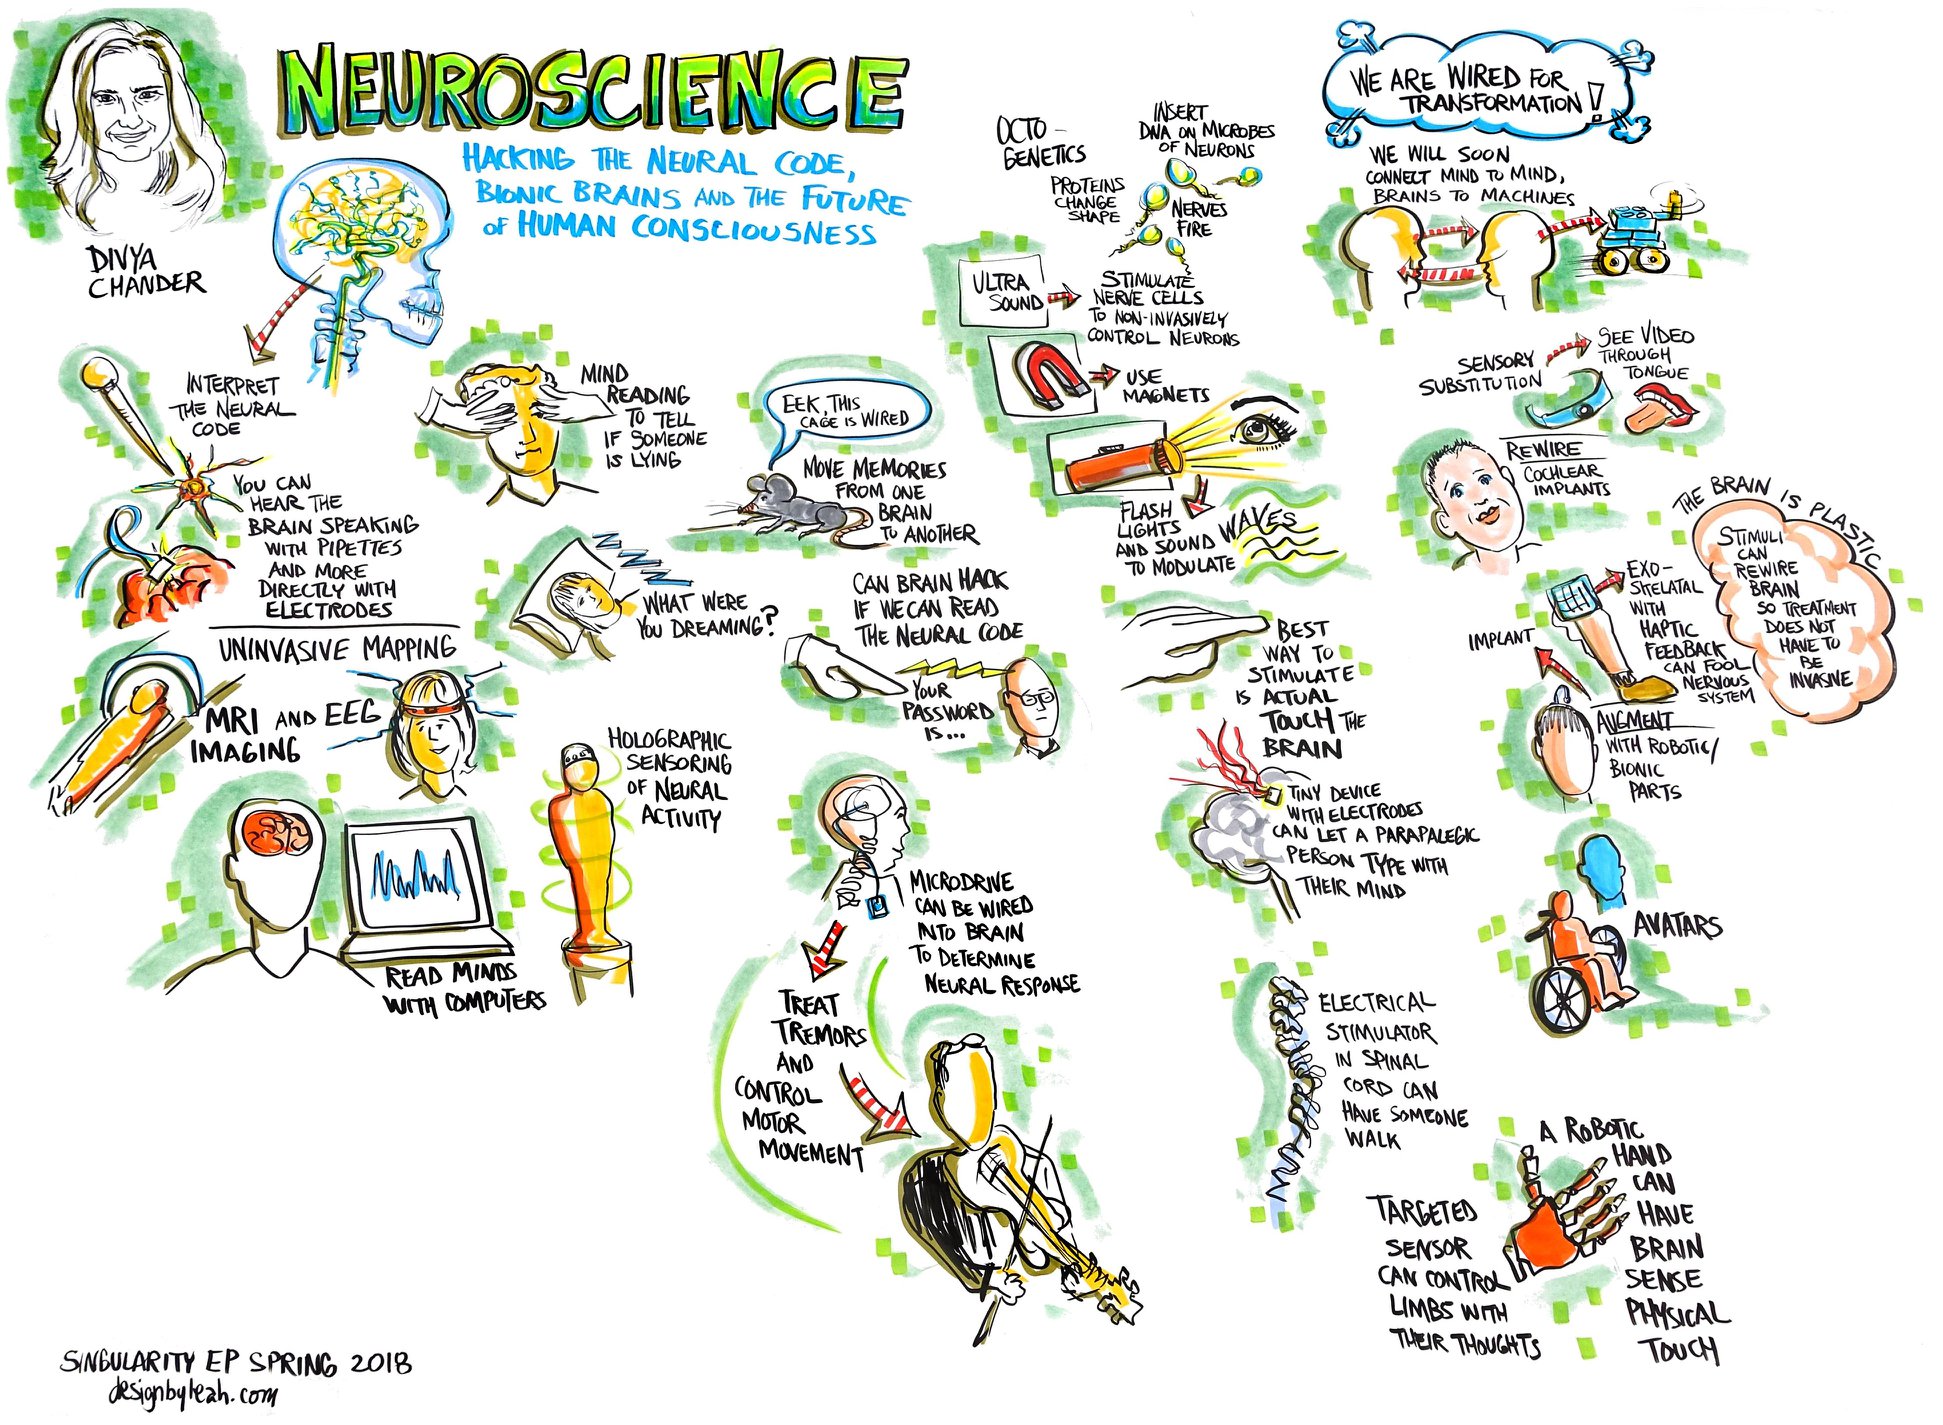 NEUROSCIENCE
HACKING THE NEURAL CODE,
BIONIC BRAINS AND THE FUTURE
OF HUMAN CONSCIOUSNESS
DIVYA
CHANDER
INTERPRET
THE NEURAL
CODE
YOU CAN
HEAR THE
BRAIN SPEAKING
WITH PIPETTES
AND MORE
DIRECTLY WITH
ELECTRODES
UNINVASIVE MAPPING
MRI AND EEG
IMAGING
READ MINDS
WITH COMPUTERS
HOLOGRAPHIC
SENSORING
OF NEURAL
ACTIVITY
MIND
READING
TO TELL
IF SOMEONE
IS LYING
WHAT WERE
YOU DREAMING?
EEK, THIS
CAGE IS WIRED
MOVE MEMORIES
FROM ONE
BRAIN
TO ANOTHER
CAN BRAIN HACK
IF WE CAN READ
THE NEURAL CODE
YOUR
PASSWORD
IS...
MICRODRIVE
CAN BE WIRED
INTO BRAIN
TO DETERMINE
NEURAL RESPONSE
TREAT
TREMORS
AND
CONTROL
MOTOR
MOVEMENT
OCTO-
GENETICS
INSERT
DNA ON MICROBES
OF NEURONS
PROTEINS
CHANGE
SHAPE
NERVES
FIRE
ULTRA
SOUND
STIMULATE
NERVE CELLS
TO NON-INVASIVELY
CONTROL NEURONS
USE
MAGNETS
FLASH
LIGHTS
AND SOUND WAVES
TO MODULATE
BEST
WAY TO
STIMULATE
IS ACTUAL
TOUCH THE
BRAIN
TINY DEVICE
WITH ELECTRODES
CAN LET A PARAPALEGIC
PERSON TYPE WITH
THEIR MIND
ELECTRICAL
STIMULATOR
IN SPINAL
CORD CAN
HAVE SOMEONE
WALK
WE ARE WIRED FOR
TRANSFORMATION!
WE WILL SOON
CONNECT MIND TO MIND,
BRAINS TO MACHINES
SENSORY
SUBSTITUTION
SEE VIDEO
THROUGH
TONGUE
REWIRE
COCHLEAR
IMPLANTS
THE BRAIN IS PLASTIC
STIMULI
CAN
REWIRE
BRAIN
SO TREATMENT
DOES NOT
HAVE TO
BE
INVASIVE
EXO-
SKELATAL
WITH
HAPTIC
FEEDBACK
CAN FOOL
NERVOUS
SYSTEM
IMPLANT
AUGMENT
WITH ROBOTIC/
BIONIC
PARTS
AVATARS
TARGETED
SENSOR
CAN CONTROL
LIMBS WITH
THEIR THOUGHTS
A ROBOTIC
HAND
CAN
HAVE
BRAIN
SENSE
PHYSICAL
TOUCH
SINGULARITY EP SPRING 2018
designbyleah.com